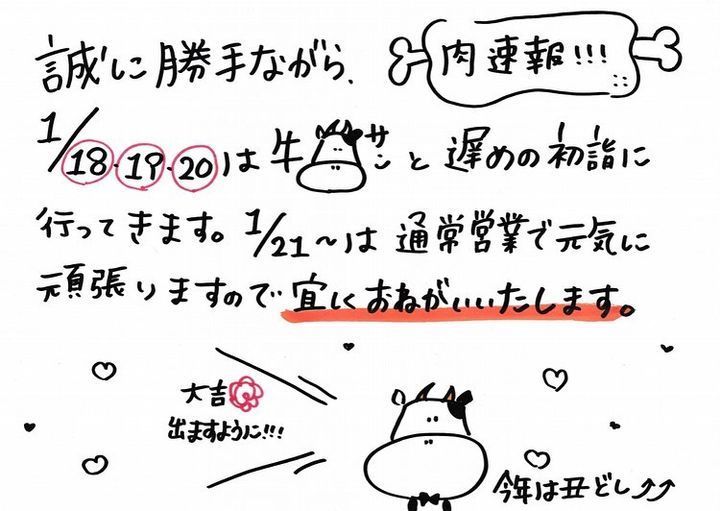 肉速報!!!
誠に勝手ながら、
1/18・19・20は牛サンと遅めの初詣に
行ってきます。1/21～は通常営業で元気に
頑張りますので宜しくおねがいいたします。
大吉
出ますように!!!
今年は丑どし↗↗